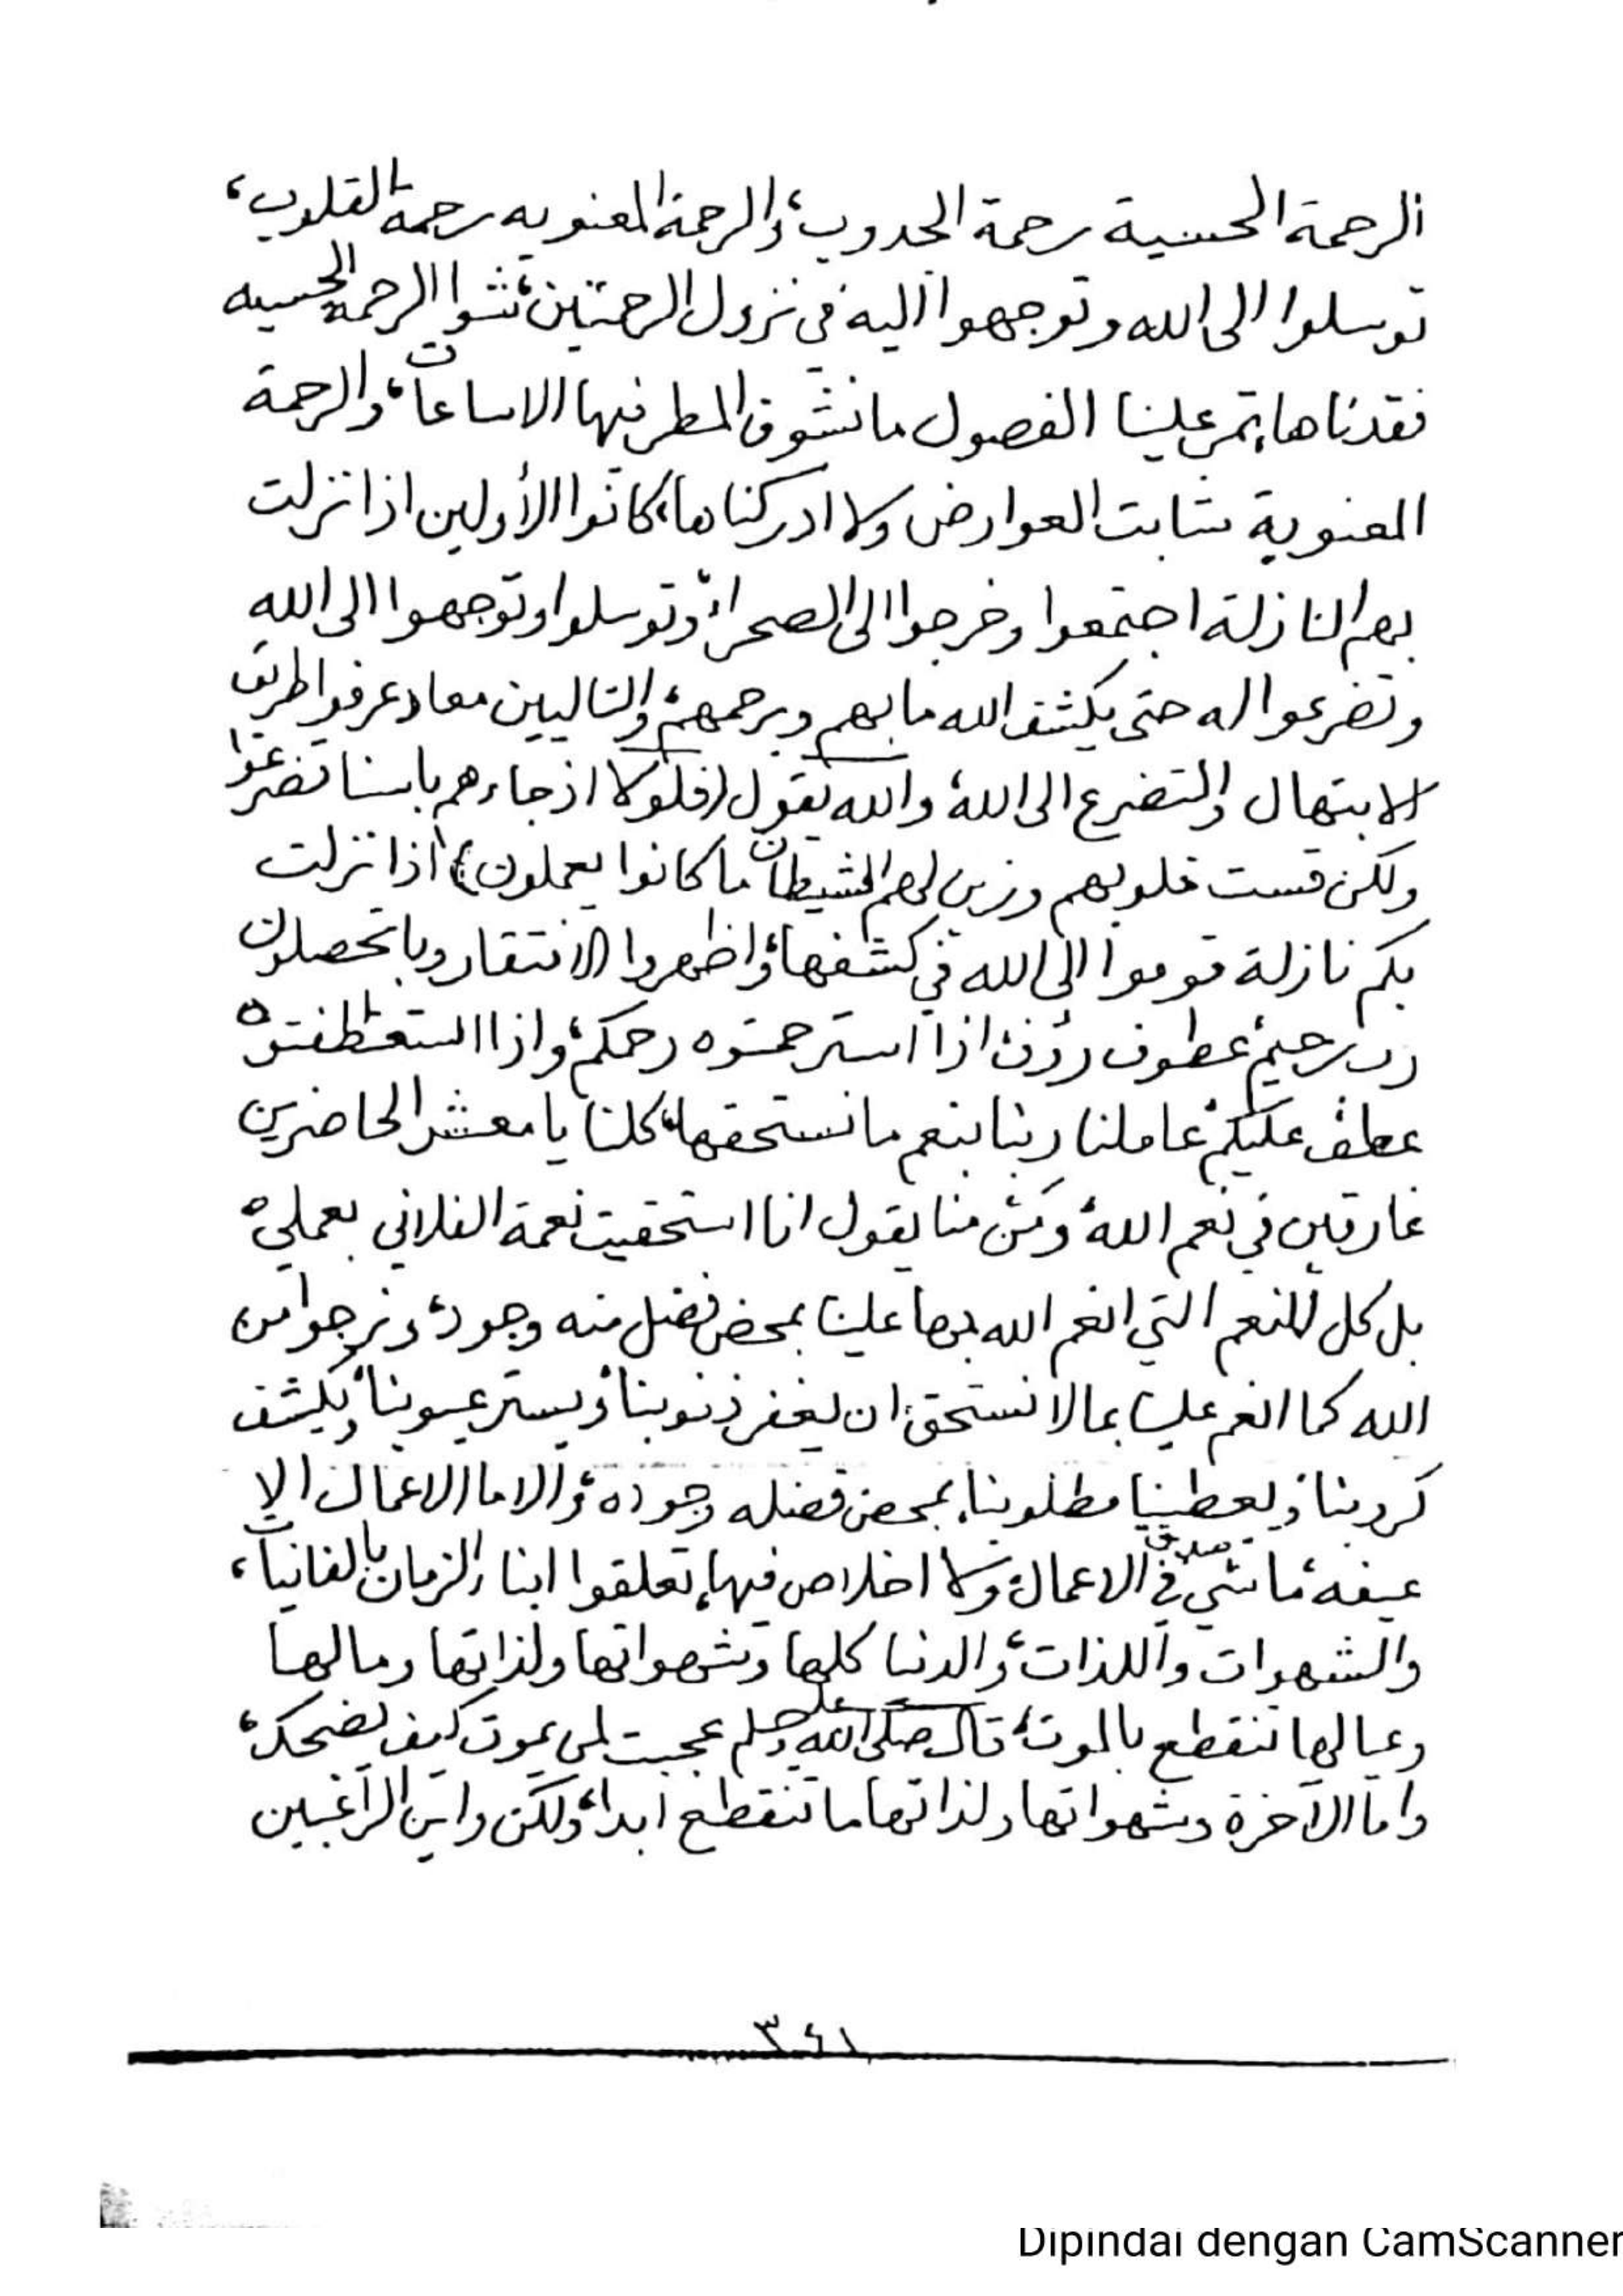 الرحمة الحسية رحمة الجدوب، والرحمة المعنويه رحمة القلوب،
توسلوا الى الله وتوجهوا اليه في نزول الرحمتين، شوا الرحمة الحسيه
فقدناها، تمر علينا الفصول ما نشوف المطر فيها الا ساعات، والرحمة
المعنوية شابت العوارض ولا ادركناها، كانوا الأولين اذا نزلت
بهم النازلة اجتمعوا وخرجوا الى الصحراء، وتوسلوا وتوجهوا الى الله
وتضرعوا له حتى يكشف الله ما بهم ويرحمهم، والتاليين معاد عرفوا طريق
الابتهال والتضرع الى الله، والله يقول (فلولا اذ جاءهم باسنا تضرعوا
ولكن قست قلوبهم وزين لهم الشيطان ما كانوا يعملون) اذا نزلت
بكم نازلة قوموا الى الله في كشفها، واظهروا الافتقار وباتحصلون
رب رحيم، عطوف رؤف اذا استرحمتوه رحمكم، واذا استعطفتوه
عطف عليكم، عاملنا ربنا بنعم ما نستحقها، كلنا يا معشر الحاضرين
غارقين في نعم الله، ومن منا يقول انا استحقيت نعمة الفلاني بعملي،
بل كل النعم التي انعم الله بها علينا بمحض فضل منه وجود، ونرجوا من
الله كما انعم علينا بما لا نستحق، ان يغفر ذنوبنا، ويستر عيوبنا، ويكشف
كروبنا، ويعطينا مطلوبنا، بمحض فضله وجوده، والا ما الاعمال الا
عيفه، ما شي صدق في الاعمال، ولا اخلاص فيها، تعلقوا ابناء الزمان بالفانيات،
والشهوات واللذات، والدنيا كلها وشهواتها ولذاتها ومالها
وعيالها تنقطع بالموت، قال صلى الله عليه وسلم عجبت لمن يموت كيف يضحك،
واما الآخرة وشهواتها ولذاتها ما تنقطع ابدا، ولكن واين الراغبين
٣٤١
Dipindai dengan CamScanner